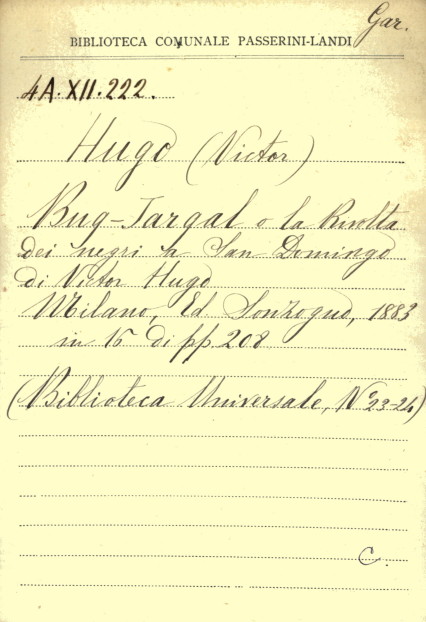 Gar.
BIBLIOTECA COMUNALE PASSERINI-LANDI
4A.XII.222.
Hugo (Victor)
Bug-Jargal o la Rivolta
dei negri a San Domingo
di Victor Hugo
Milano, Ed Sonzogno, 1883
in 16 di pp. 208
(Biblioteca Universale, Nº 23-24)
C.